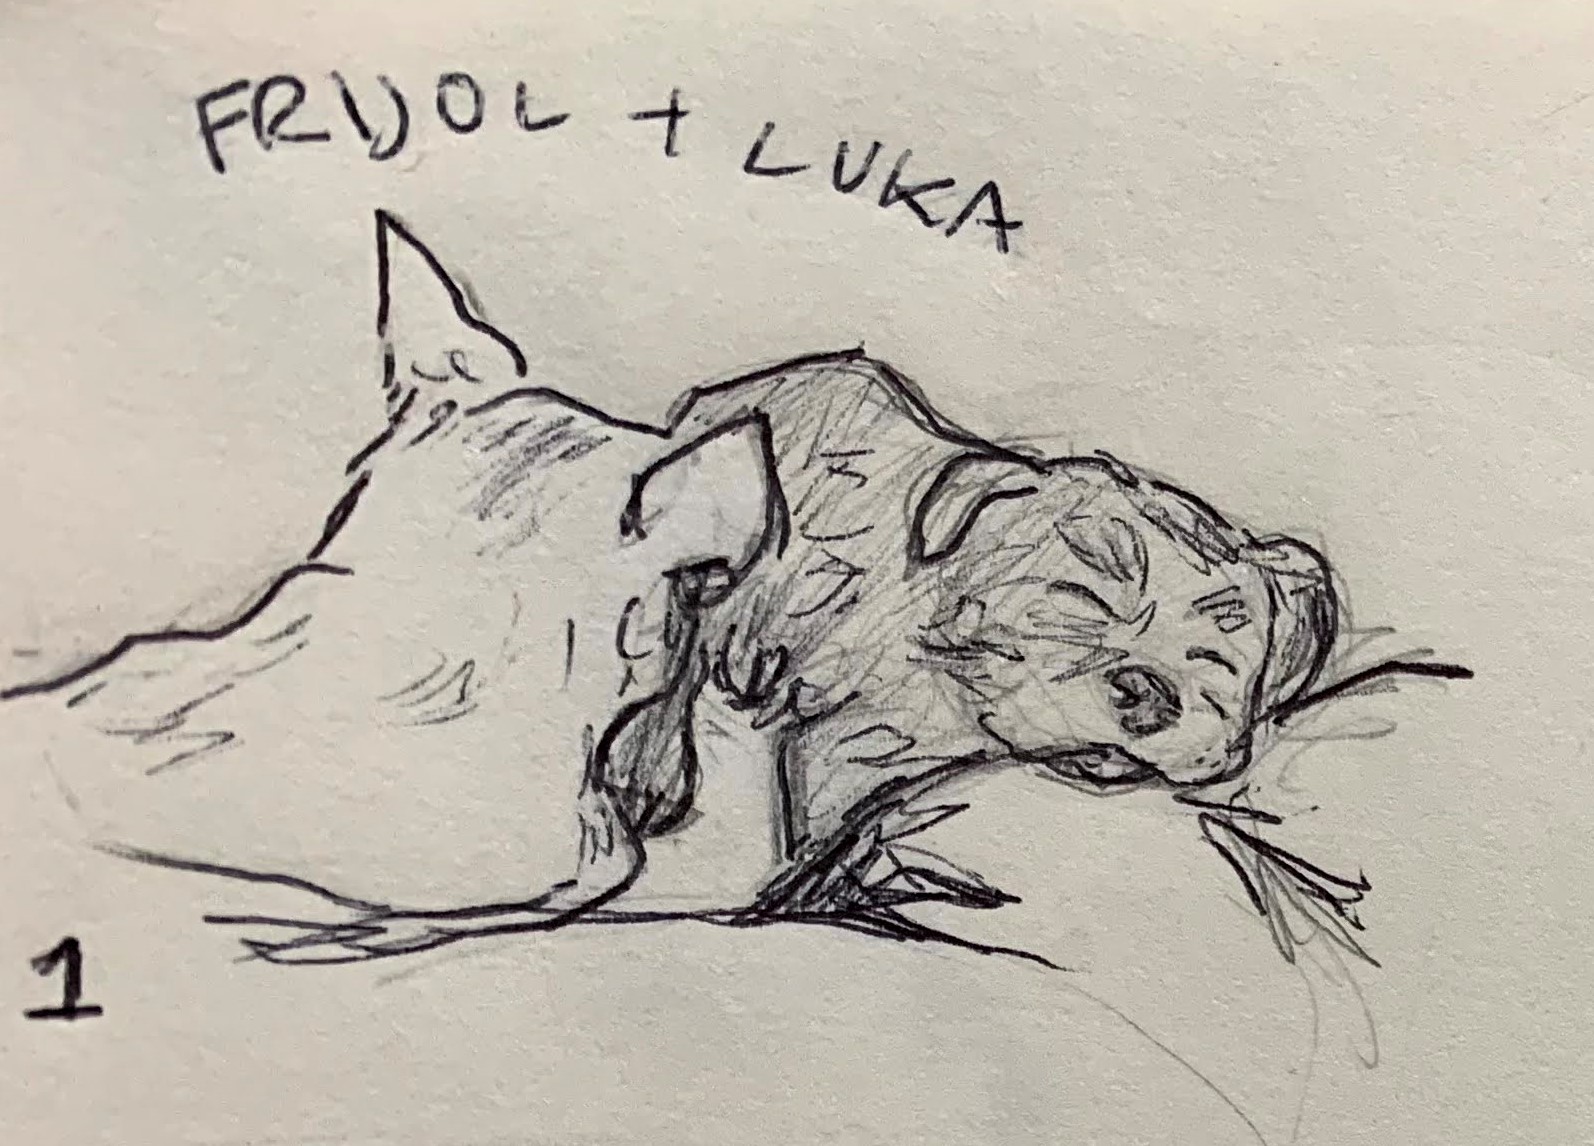 FRIJOL + LUKA
1